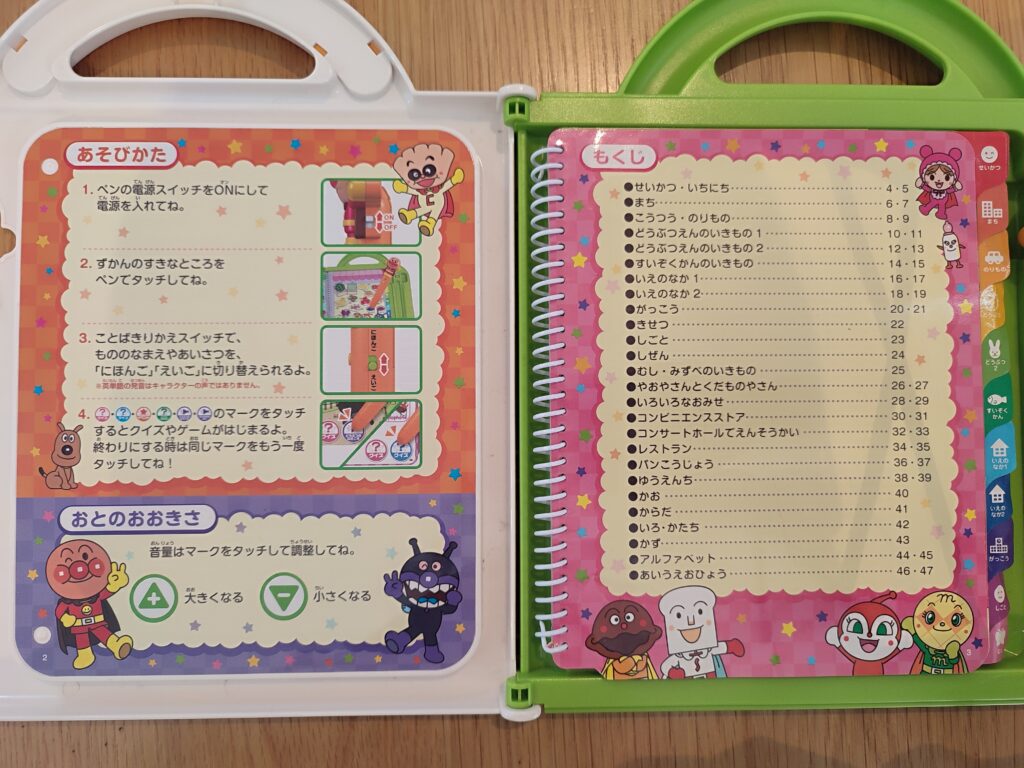 あそびかた
1. ペンの電源スイッチをONにして
電源を入れてね。
ON
OFF
2. ずかんのすきなところを
ペンでタッチしてね。
3. ことばきりかえスイッチで、
もののなまえやあいさつを、
「にほんご」「えいご」に切り替えられるよ。
※英単語の発音はキャラクターの声ではありません。
にほんご
えいご
4. のマークをタッチ
するとクイズやゲームがはじまるよ。
終わりにする時は同じマークをもう一度
タッチしてね!
クイズ
クイズ
おとのおおきさ
音量はマークをタッチして調整してね。
大きくなる
小さくなる
2
もくじ
●せいかつ・いちにち 4・5
●まち 6・7
●こうつう・のりもの 8・9
●どうぶつえんのいきもの 1 10・11
●どうぶつえんのいきもの 2 12・13
●すいぞくかんのいきもの 14・15
●いえのなか 1 16・17
●いえのなか 2 18・19
●がっこう 20・21
●きせつ 22
●しごと 23
●しぜん 24
●むし・みずべのいきもの 25
●やおやさんとくだものやさん 26・27
●いろいろなおみせ 28・29
●コンビニエンスストア 30・31
●コンサートホールでえんそうかい 32・33
●レストラン 34・35
●パンこうじょう 36・37
●ゆうえんち 38・39
●かお 40
●からだ 41
●いろ・かたち 42
●かず 43
●アルファベット 44・45
●あいうえおひょう 46・47
3
せいかつ
まち
のりもの
どうぶつ
2
すいぞく
かん
いえの
なか1
いえの
なか2
がっこう
しごと